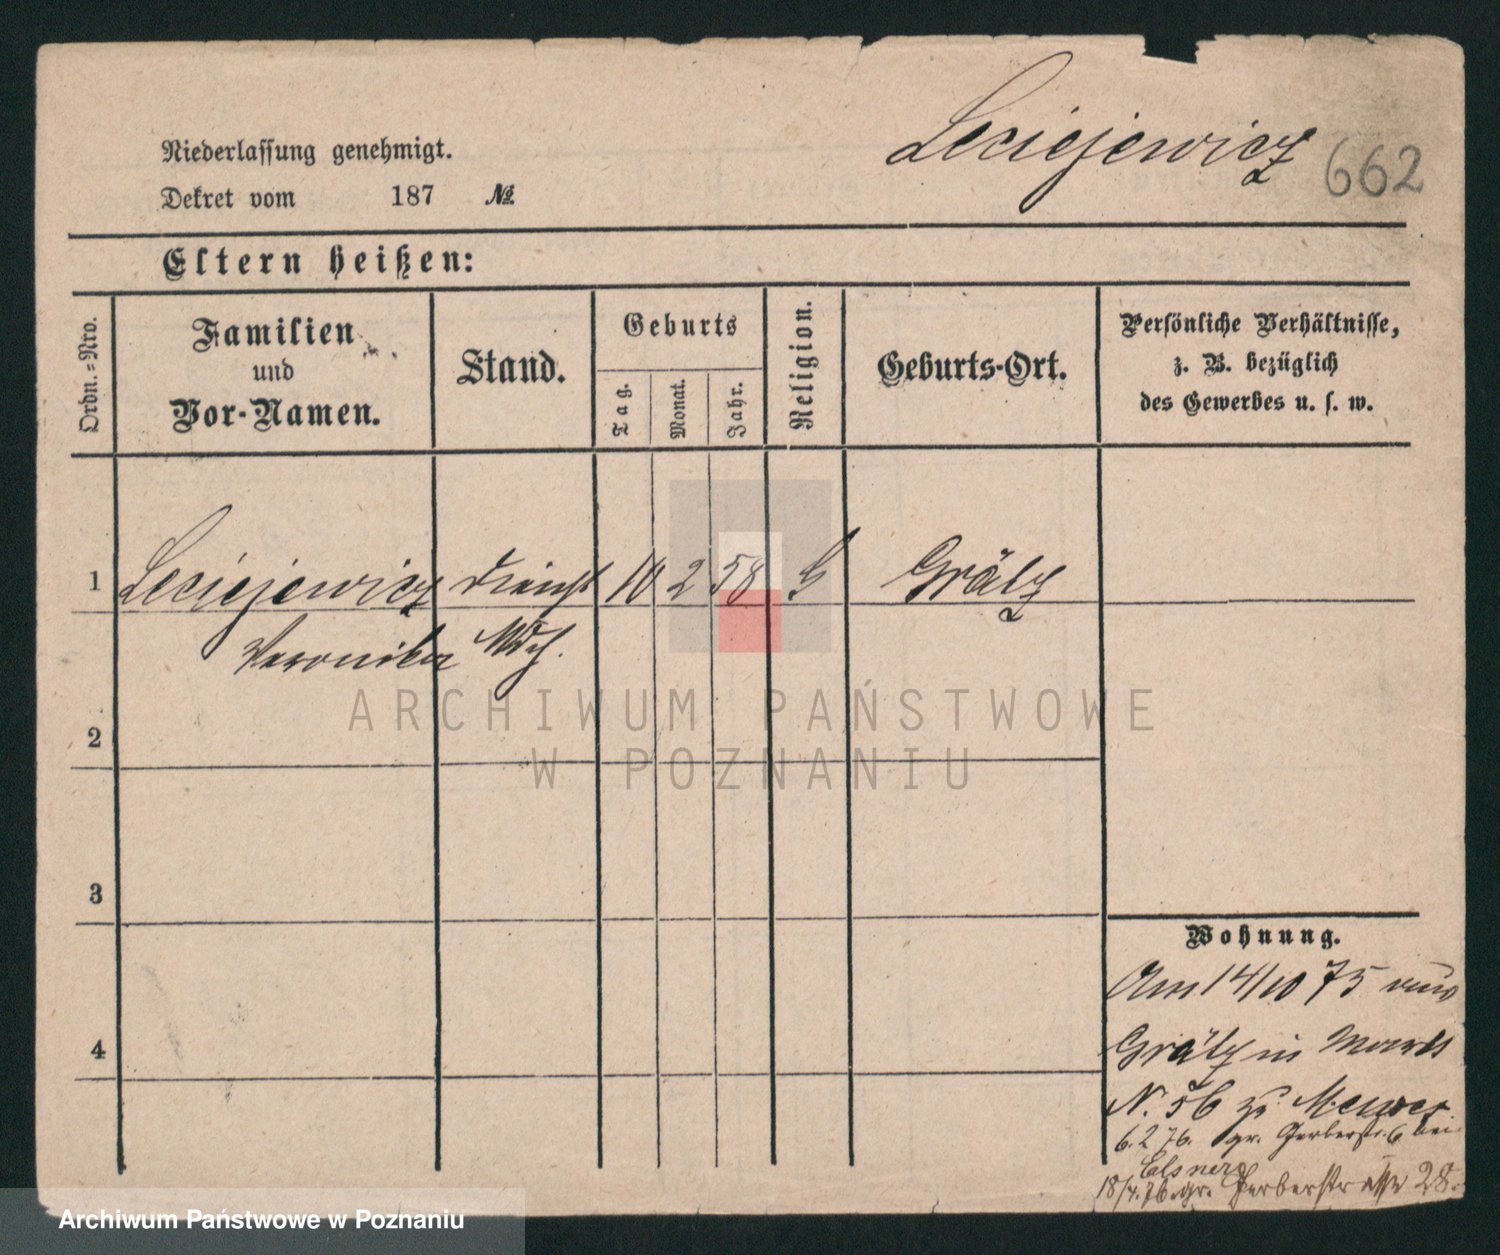 Leciejewicz 662
Niederlassung genehmigt.
Dekret vom 187 №
Eltern heißen:
Ordn.=Nro.
Familien
und
Vor-Namen.
Stand.
Geburts
Tag.
Monat.
Jahr.
Religion.
Geburts-Ort.
Persönliche Verhältnisse,
z. B. bezüglich
des Gewerbes u. s. w.
1 Leciejewicz Dienst 10 2 58 Grätz
Veronika Mdch.
2
3
4
Wohnung.
Am 14/10 75 aus
Grätz in Markt
N. 56 zu
6.2 76. gr. Gerberstr. 6 bei
Elsner
18/4.76. gr. Gerberstrasse 28.
ARCHIWUM PAŃSTWOWE
W POZNANIU
Archiwum Państwowe w Poznaniu